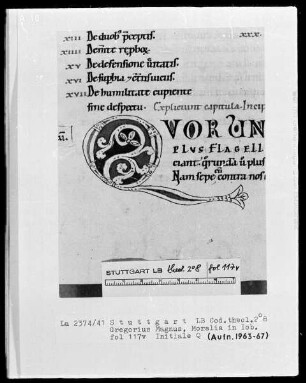 XIII De duob' p̄ceptis. XXX.
XIIII De
XV De defensione
XVI De supbia
XVII De humilitate cupiente
sine despectu. Explicıunt capitula. Incip
VORUN
PLUS FLAGELL
ciant.
Nam sepe contra nos
STUTTGART LB theol. 2° 8 fol 117v
La 2374/41 Stuttgart LB Cod.theol.2°8
Gregorius Magnus, Moralia in Iob.
fol 117v Initiale Q (Aufn.1963-67)